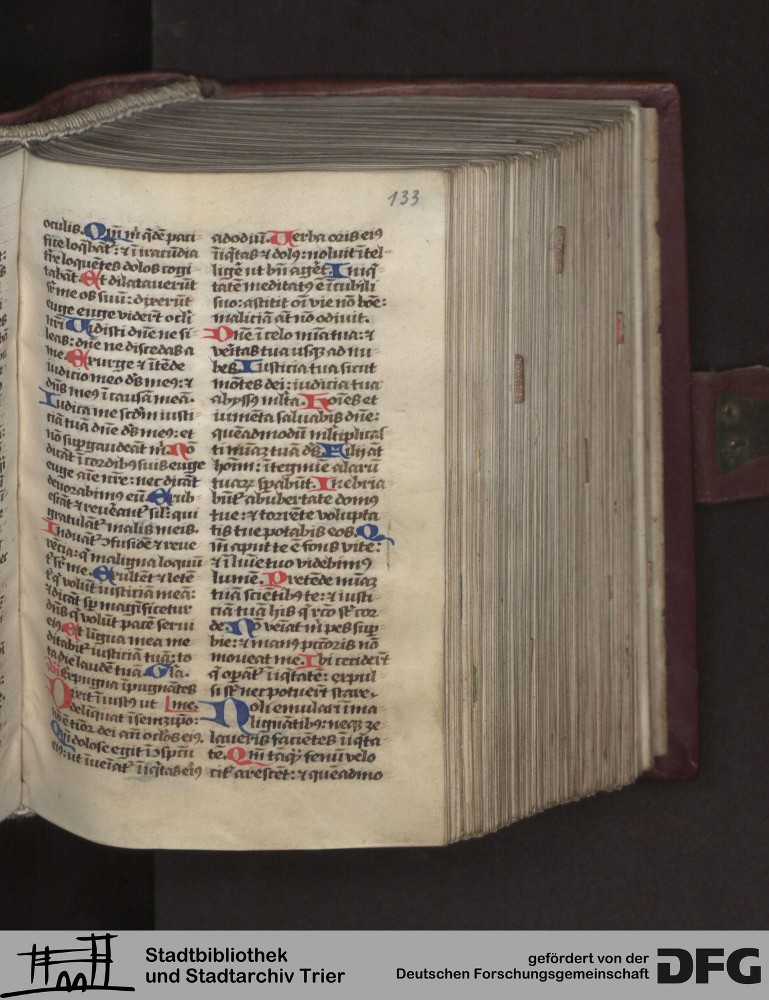 133
oculis. Qm̄ m̄ q̇dē paci-
fice loq̄bāt᷑: ⁊ ī iracūdia
tr̄e loquētes dolos cogi-
tabāt. Et dilatauerūt
sr̄ me os suū: dixerūt
euge euge viderūt ocl̓i
nr̄i Uidisti dn̄e ne si-
leas: dn̄e ne discedas a
me. Exurge ⁊ ītēde
iudicio meo dꝰ meꝰ: ⁊
dn̄s meꝰ ī causā meā.
Iudica me scdm̄ iusti-
ciā tuā dn̄e dꝰ meꝰ: et
nō supgaudeāt m̄. Nō
dicāt ī cordibꝰ suis euge
euge aīe nr̄e: nec dicāt
deuorabimꝰ eū. Erub-
escāt ⁊ reueāt᷑ sil̓: qui
gratulāt᷑ malis meis.
Induāt᷑ ꝯfusiōe ⁊ reue
rēcia: q̇ maligna loquū
t᷑ sr̄ me. Exultēt ⁊ letē
t᷑ q̇ volūt iusticiā meā:
⁊ dicāt sp̄ magnificetur
dn̄s q̇ volūt pacē serui
eiꝰ. Et līgua mea me
ditabit᷑ iusticiā tuā: to
ta die laudē tuā.
Expugna īpugnātes
Dixit ī iustꝰ ut me.
deliquat ī semetip̄o:
nō ē tīor dei an̄ oclos eiꝰ.
Qm̄ dolose egit ī ꝯspc̄tu
eiꝰ: ut īueiat᷑ īiq̇tas eiꝰ
ad odiū. Uerba oris eiꝰ
īiq̇tas ⁊ dolꝰ: noluit ītel-
ligē ut bn̄ aget. Iniq̇-
tatē meditatꝰ ē ī cubili
suo: astitit oī vie nō boē:
maliciā at̄ nō odiuit.
Dn̄e ī celo mīa tua: ⁊
veritas tua usqꝫ ad nu-
bes. Iusticia tua sicut
mōtes dei: iudicia tua
abyssꝰ ml̓ta. Hoīes et
iumēta saluabis dn̄e:
queadmodū ml̓tiplicas
ti mīaꝫ tuā dꝰ. Filij at̄
hoīm: ī tegmie alarū
tuaꝝ sp̄abūt. Inebria-
būt᷑ ab ubertate domꝰ
tue: ⁊ torrēte volupta
tis tue potabis eos. Q
m̄ aput te ē fons vite:
⁊ ī luīe tuo videbimꝰ
lumē. Pretēde mīaꝫ
tuā sciētibꝰ te: ⁊ iusti-
ciā tuā his q̇ rc̄o st̄ cor-
de. Nō veiat m̄ pes sup
bie: ⁊ manꝰ pctoris nō
moueat me. Ibi cecider̄t
q̇ opāt᷑ īiq̇tatē: expul
si st̄ nec potuer̄t stare.
Noli emulari ī ma
lignātibꝰ: neqꝫ ze
laueris faciētes īiq̇ta
tē. Qm̄ tāq̇ꝫ fenū velo
cit᷑ arescēt: ⁊ queadmo
Stadtbibliothek
und Stadtarchiv Trier
gefördert von der
Deutschen Forschungsgemeinschaft
DFG